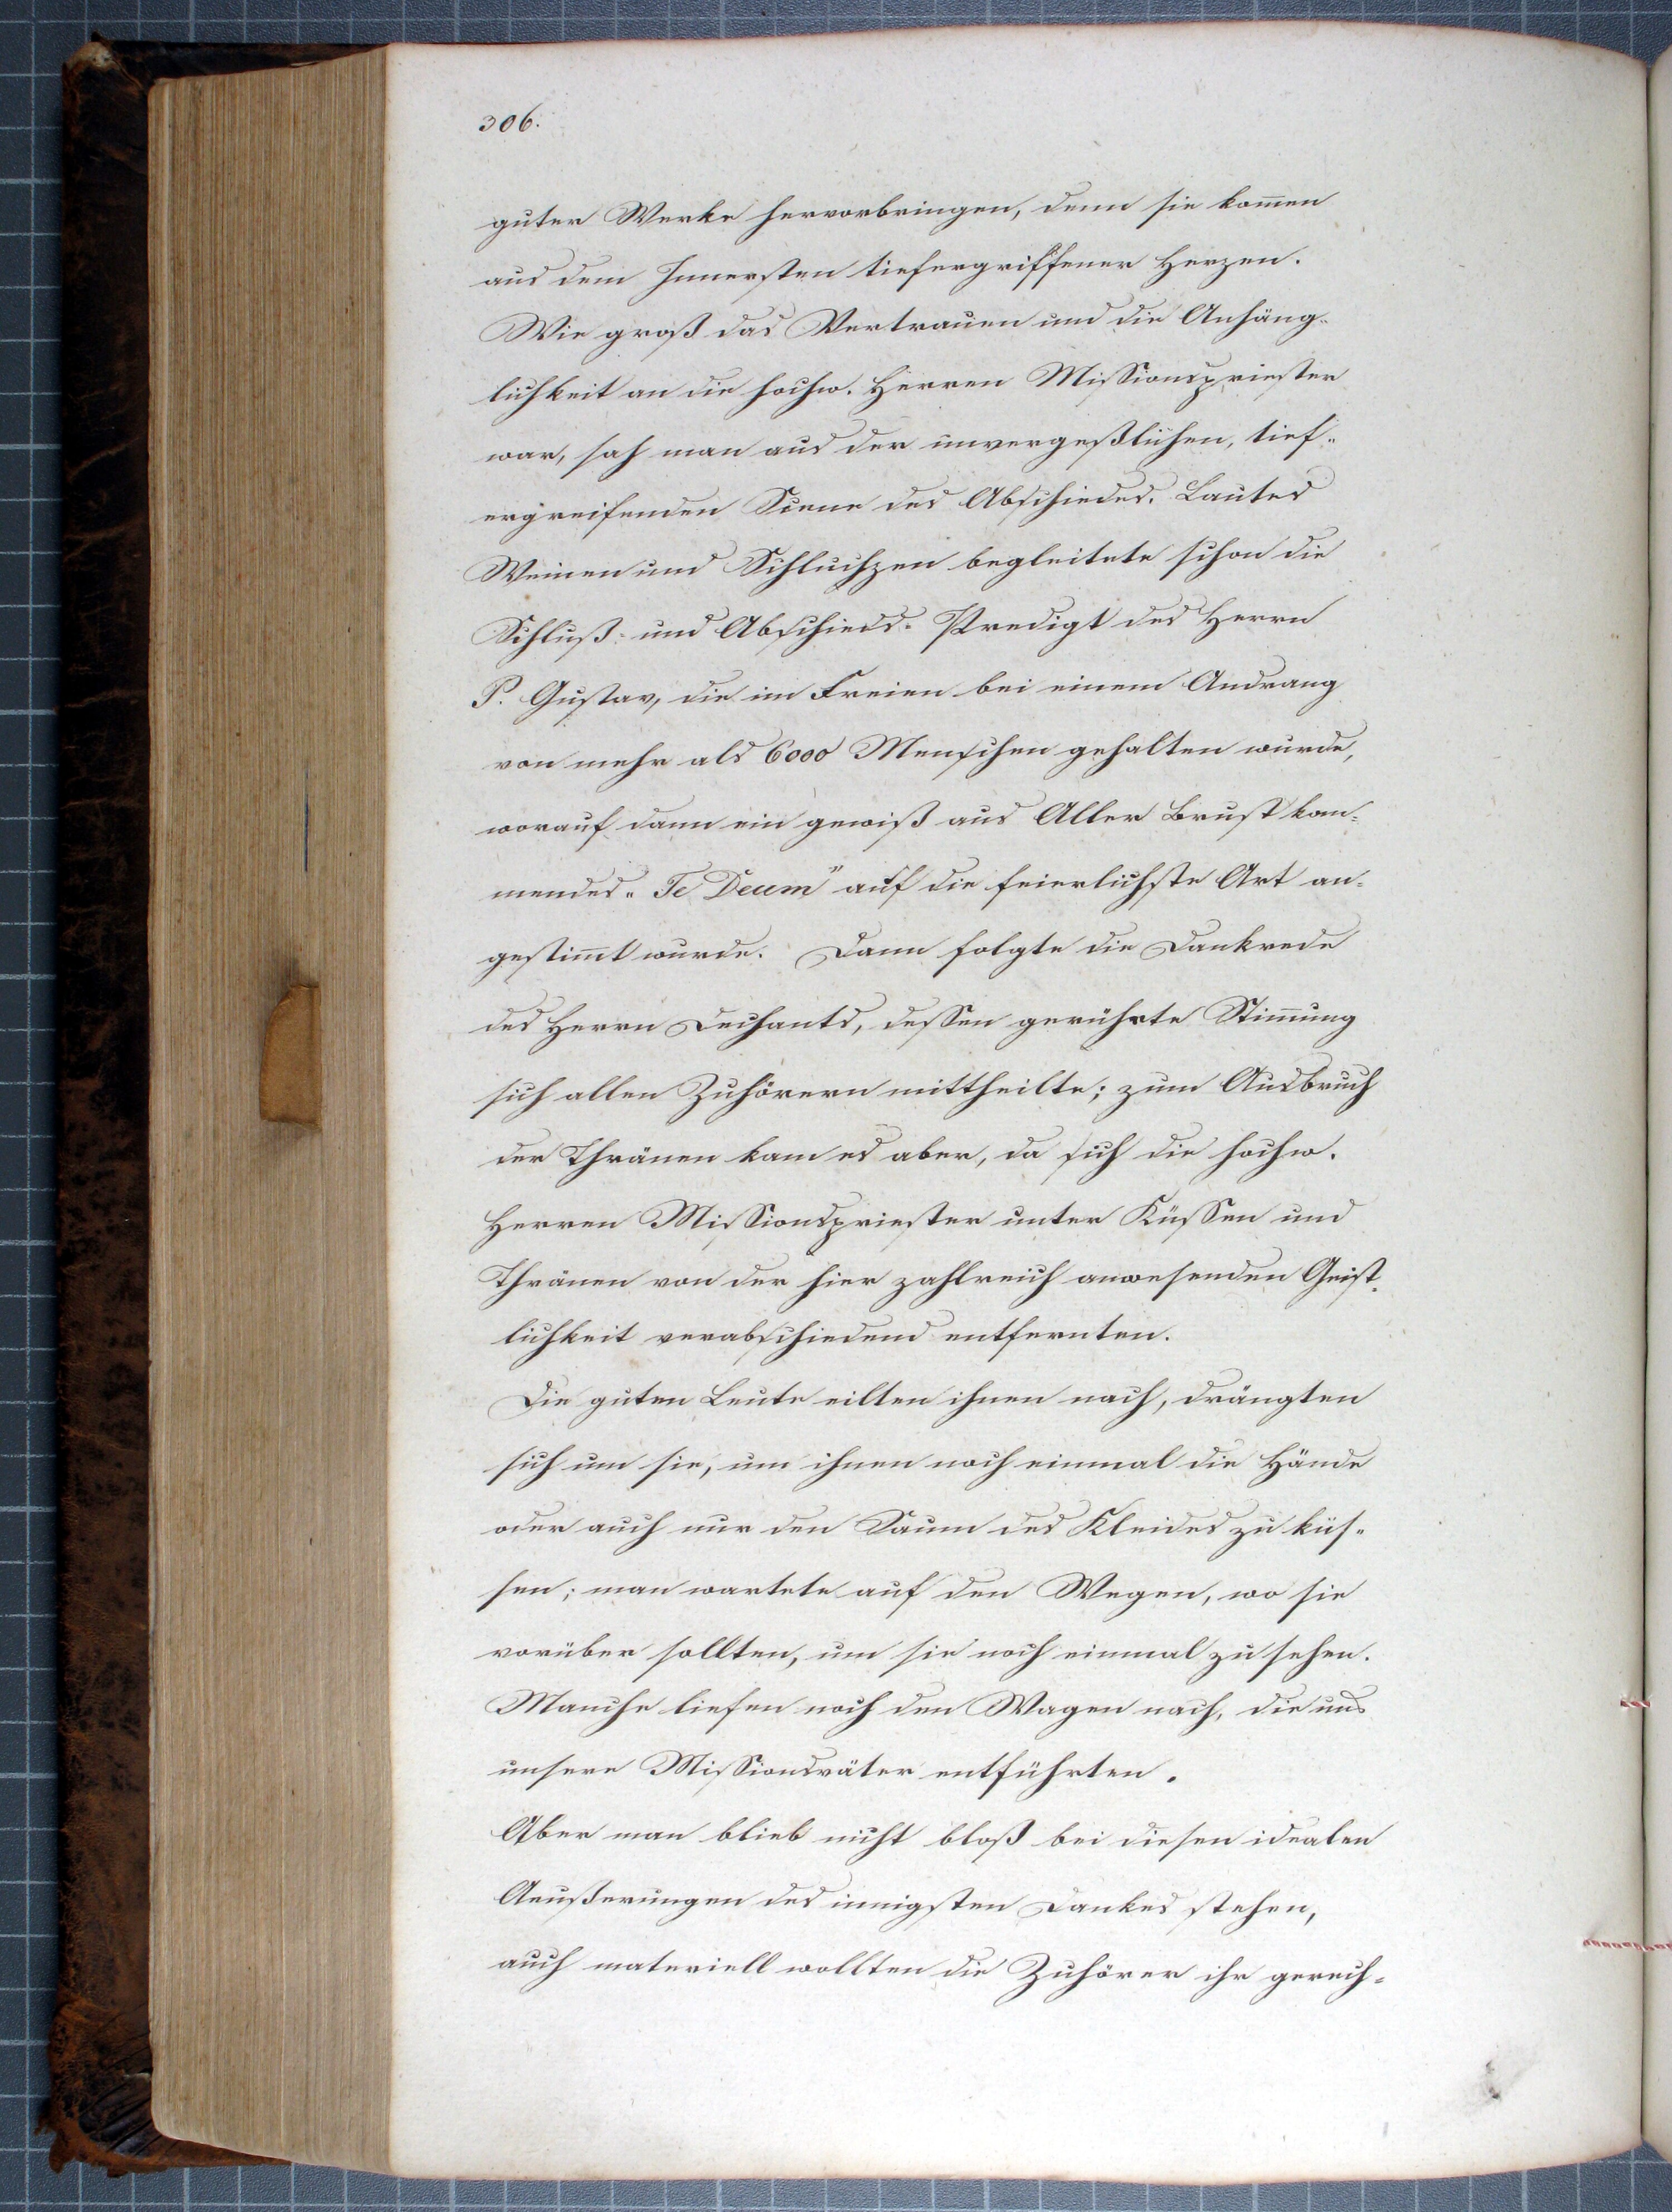 306.
guter Werke hervorbringen, denn sie kom̅en
aus dem Innersten tiefergriffener Herzen.
Wie groß das Vertrauen und die Anhäng-
lichkeit an die hochw. Herren Missionspriester
war, sah man aus der unvergeßlichen, tief-
ergreifenden Scene des Abschiedes. Lautes
Weinen und Schluchzen begleitete schon die
Schluß- und Abschieds-Predigt des Herrn
P. Gustav, die im Freien bei einem Andrang
von mehr als 6000 Menschen gehalten wurde,
worauf dann ein gewiß aus Aller Brust kom-
mendes „Te Deum" auf die feierlichste Art an-
gestim̅t wurde. Dann folgte die Dankrede
des Herrn Dechants, dessen gerührte Stim̅ung
sich allen Zuhörern mittheilte; zum Ausbruch
der Thränen kam es aber, da sich die hochw.
Herren Missionspriester unter Küssen und
Thränen von der hier zahlreich anwesenden Geist-
lichkeit verabschiedend entfernten.
Die guten Leute eilten ihnen nach, drängten
sich um sie, um ihnen noch einmal die Hände
oder auch nur den Saum des Kleides zu küs-
sen; man wartete auf den Wegen, wo sie
vorüber sollten, um sie noch einmal zu sehen.
Manche liefen noch den Wagen nach, die uns
unsere Missionsväter entführten.
Aber man blieb nicht bloß bei diesen idealen
Aeußerungen des innigsten Dankes stehen,
auch materiell wollten die Zuhörer ihr gerech-